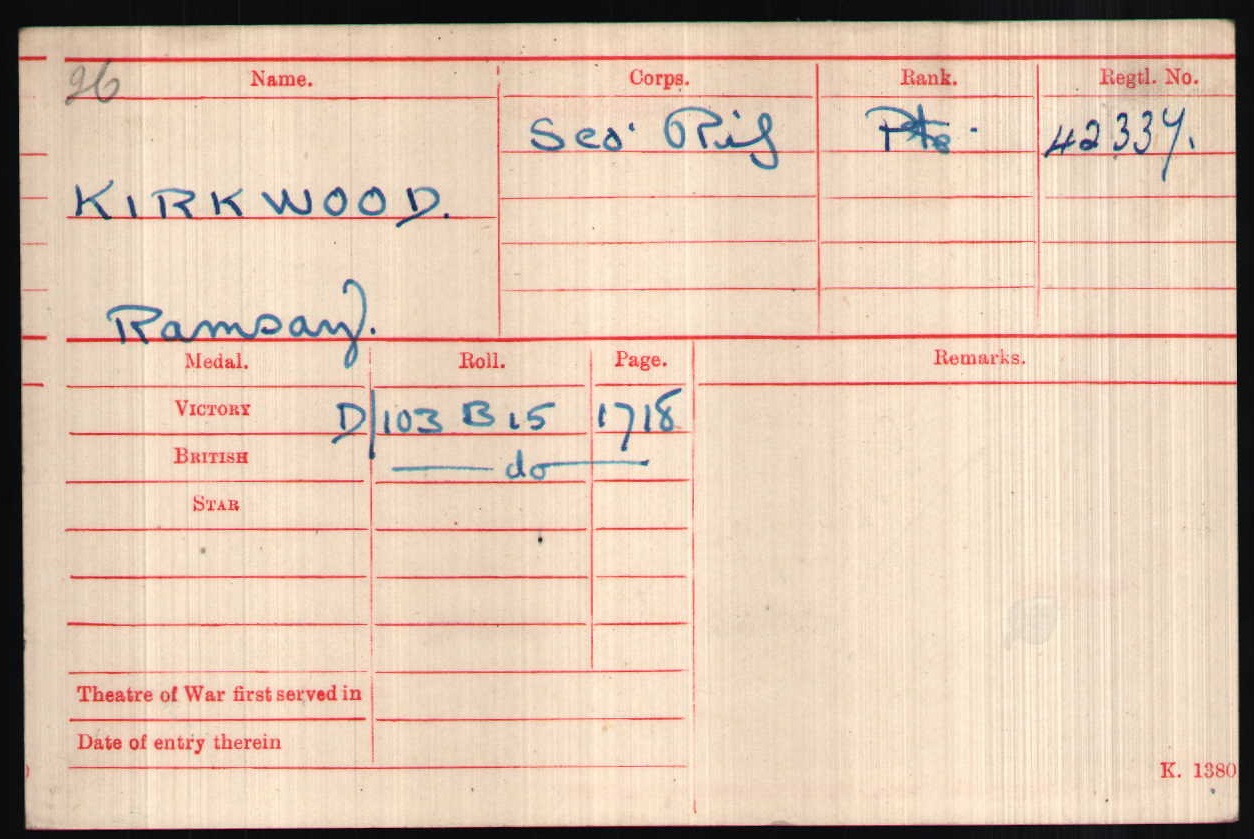 26
Name. Corps. Rank. Regtl. No.
Sco. Rif Pte. 42337.
KIRKWOOD.
Ramsay.
Medal. Roll. Page. Remarks.
VICTORY D/103 B15 1718
BRITISH do
STAR
Theatre of War first served in
Date of entry therein
K. 1380